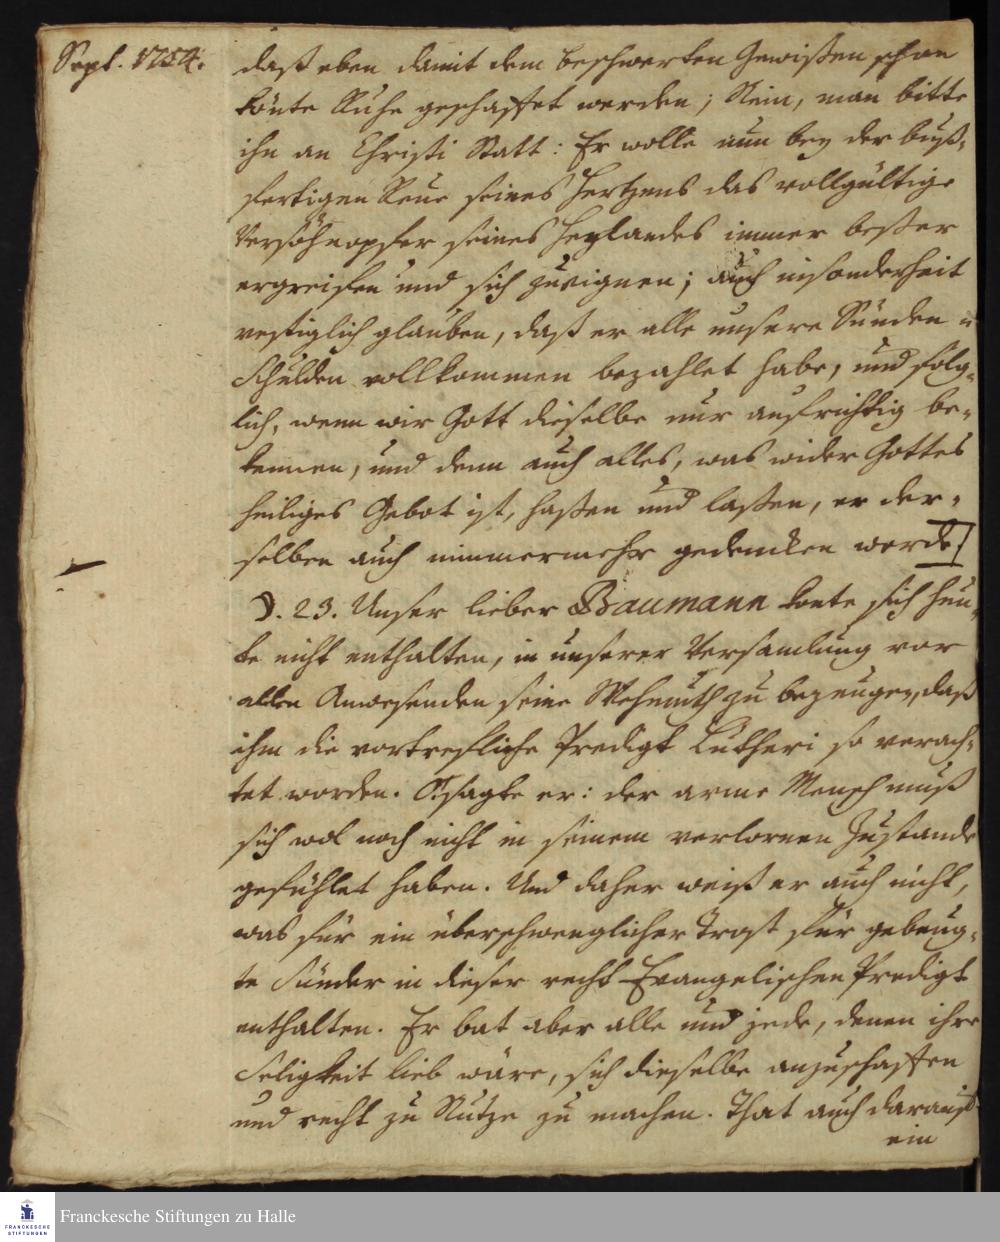 Sept. 1754.
daß eben damit dem beschwerten Gewißen schon
könte Ruhe geschaffet werden; Nein, man bitte
ihn an Christi Statt: Er wolle nun bey der buß-
fertigen Reue seines Hertzens das vollgültige
Versöhnopfer seines Heylandes immer beßer
ergreifen und sich zueignen; auch insonderheit
vestiglich glauben, daß er alle unsere Sünden u
Schulden vollkommen bezahlet habe, und folg-
lich, wenn wir Gott dieselbe nur aufrichtig be-
kennen, und denn auch alles, was wider Gottes
heiliges Gebot ist, haßen und laßen, er der-
selben auch nimmermehr gedencken werde]
D. 23. Unser lieber Baumann konte sich heu-
te nicht enthalten, in unserer Versamlung vor
allen Anwesenden seine Wehmuth zu bezeugen, daß
ihm die vortrefliche Predigt Lutheri so verach-
tet worden. O! sagte er: der arme Mensch muß
sich wol noch nicht in seinem verlornen Zustande
gefühlet haben. Und daher weiß er auch nicht,
was für ein überschwenglicher Trost für gebeug-
te Sünder in dieser recht Evangelischen Predigt
enthalten. Er bat aber alle und jede, denen ihre
Seligkeit lieb wäre, sich dieselbe anzuschaffen
und recht zu Nutze zu machen. That auch darauf
ein
FRANCKESCHE
STIFTUNGEN
Franckesche Stiftungen zu Halle